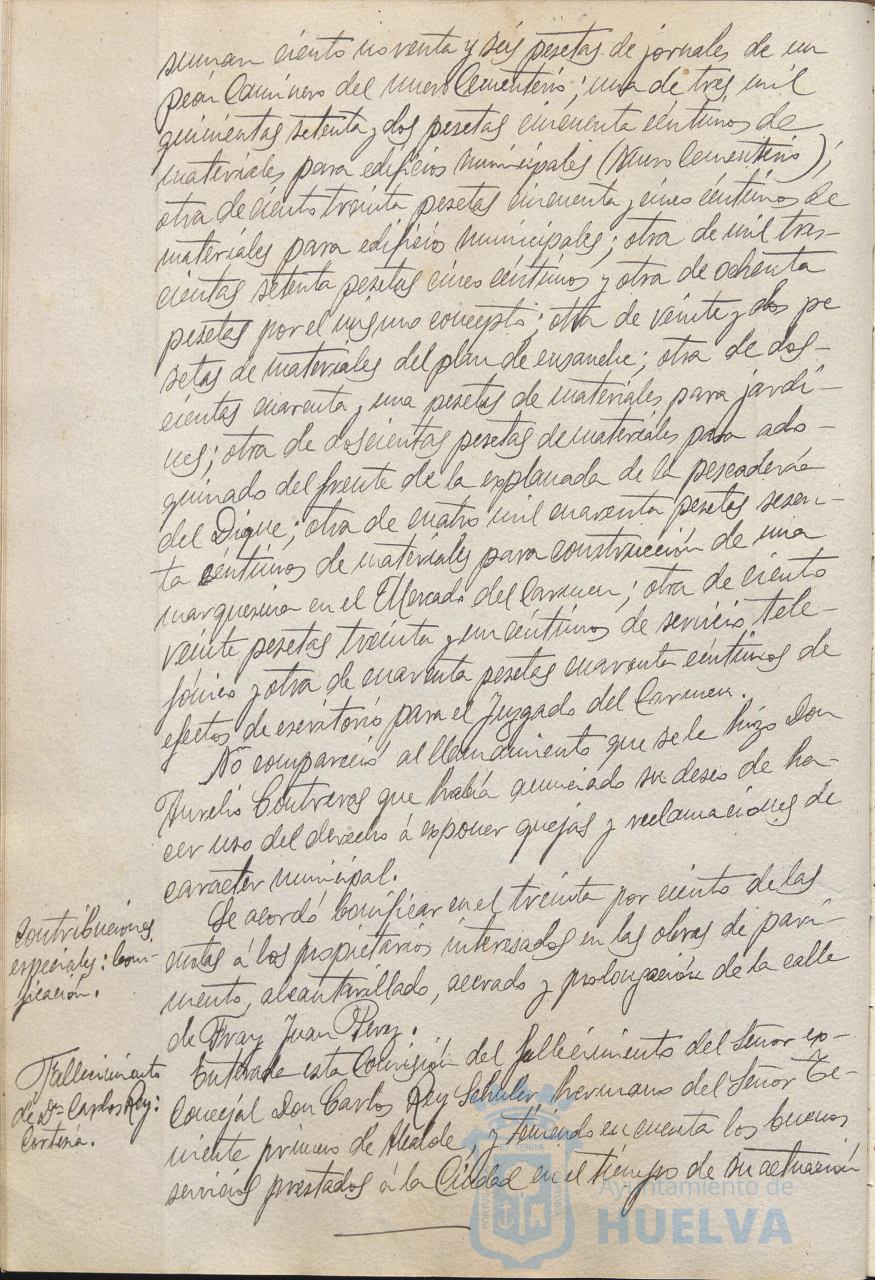 suman ciento noventa y seis pesetas de jornales de un
peón Caminero del nuevo Cementerio; una de tres mil
quinientas setenta y dos pesetas cincuenta céntimos de
materiales para edificios municipales (Nuevo Cementerio);
otra de ciento treinta pesetas cincuenta y cinco céntimos de
materiales para edificio municipales; otra de mil tres-
cientas setenta pesetas cinco céntimos y otra de ochenta
pesetas por el mismo concepto; otra de veinte y dos pe
setas de materiales del plan de ensanche; otra de dos-
cientas cuarenta y una pesetas de materiales para jardi-
nes; otra de doscientas pesetas de materiales para ado-
quinado del frente de la explanada de la pescadería
del Dique; otra de cuatro mil cuarenta pesetas sesen-
ta céntimos de materiales para construcción de una
marquesina en el Mercado del Carmen; otra de ciento
veinte pesetas treinta y un céntimos de servicio tele-
fónico y otra de cuarenta pesetas cuarenta céntimos de
efectos de escritorio para el Juzgado del Carmen.
No compareció al llamamiento que se le hizo Don
Aurelio Contreras que había anunciado su deseo de ha-
cer uso del derecho á exponer quejas y reclamaciones de
caracter municipal.
Contribuciones
especiales: boni-
ficación.
Se acordó bonificar en el treinta por ciento de las
cuotas á los propietarios interesados en las obras de pavi-
mento, alcantarillado, acerado y prolongación de la calle
de Fray Juan Perez.
Fallecimiento
de Dn Carlos Rey:
Cortesía.
Enterada esta Comisión del fallecimiento del Señor ex-
Concejal Don Carlos Rey Schuler hermano del Señor Te-
niente primero de Alcalde, y teniendo en cuenta los buenos
servicios prestados á la Ciudad en el tiempo de su actuación
Ayuntamiento de
HUELVA